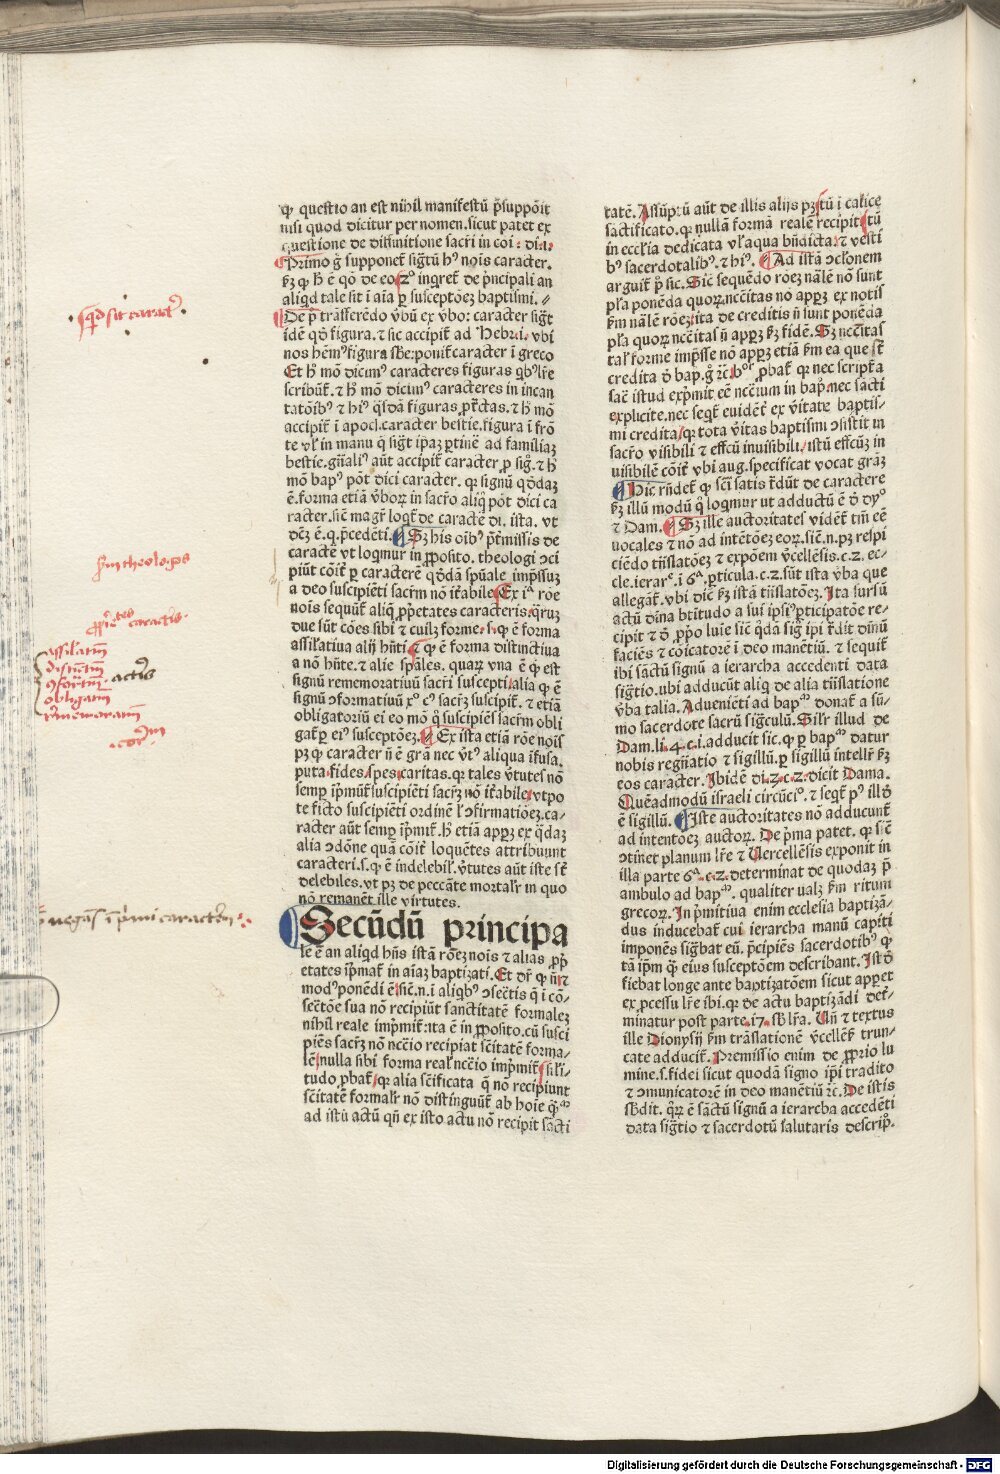 qꝫ questio an est nihil manifestũ p̃supponit
nisi quod dicitur per nomen.sicut patet ex
questione de diffinitione sacr̃i in coi : di.i.
Primo g̊ supponet̃ sigtũ hꝰ nois caracter.
aliqd tale sit i aĩa ꝑ susceptõeꝫ baptismi.
De pͥ trãsferẽdo v̓bũ ex v̓bo: caracter sigt̃
idẽ qd̓ figura. ⁊ sic accipit̃ ad Hebre.i. vbi
nos hẽmꝰ figura sbẽ: ponit̃ caracter i greco
Et hͦ mõ dicimꝰ caracteres figuras qͥbꝰ lr̃e
scribũt̃. ⁊ hͦ mõ dicimꝰ caracteres in incan
tatõibꝰ ⁊ hiꝰ q̃sdã figuras ꝓtr̃ctas. ⁊ hͦ mõ
accipit̃ i apocl. caracter bestie. figura i frõ
te vl̓ in manu q̃ sigt̃ ip̃aꝫ ꝑtinẽ ad familiaꝫ
bestie. gñaliꝰ aũt accipit̃ caracter ꝓ sigͦ. ⁊ hͦ
mõ bapꝰ põt dici caracter. qꝛ signũ qd̓daꝫ
ẽ. forma etiã v̓boꝝ in sacr̃o aliqͦ põt dici ca
racter. sic̃ magr̃ loqt̃ de caractẽ di. ista. vt
dcẽꝫ ẽ. q. p̃cedẽti. Sꝫ his oĩbꝰ p̃tmissis de
caractẽ vt loqmur in ꝓposito. theologi ɔci
piũt cõit̃ ꝑ caracterẽ qd̓dã spũale imp̃ssuꝫ
a deo suscipiẽti sacr̃m nõ it̃abile. Ex iª rõe
nois sequũt̃ aliq̃ ꝓp̃etates caracteris. q̃ruꝫ
due sũt cões sibi ⁊ cuilꝫ forme. s. qꝫ ẽ forma
assilatiua alij hñti ⁊ qꝫ ẽ forma distinctiua
a nõ hñte. ⁊ alie sp̃ales. quaꝝ vna ẽ qꝫ est
signũ rememoratiuũ sacr̃i suscepti. alia qꝫ ẽ
signũ ɔformatiuũ xͦ cꝰ sacr̃ꝫ suscipit̃. ⁊ etiã
obligatoriũ ei eo mõ qͦ suscipiẽs sacr̃m obli
gat̃ ꝑ eiꝰ susceptõeꝫ. Ex ista etiã rõe nois
pꝫ qꝫ caracter ñ ẽ gr̃a nec v̓tꝰ aliqua ĩfusa.
puta fides. spes. caritas. qꝛ tales v̓tutes nõ
semp̱ ĩp̃mũt̃ suscipiẽti sacr̃ꝫ nõ it̃abile. vtpo
te ficto suscipiẽti ordinẽ l̓ ɔfirmatiõeꝫ. ca-
racter aũt semp̱ ĩp̃mit̃. hͦ etiã appꝫ ex qd̓aꝫ
alia ɔdõne quã cõit̃ loquẽtes attribuunt
caracteri. s. qꝫ ẽ indelebil̓. v̓tutes aũt iste st̃
delebiles. vt pꝫ de peccãte mortalr̃ in quo
nõ remanẽt ille virtutes.
Secũdũ principa
le ẽ an aliqd hñs istã rõeꝫ nois ⁊ alias ꝓp̃
etates ĩp̃mat̃ in aĩaꝫ baptizati. Et dr̃ qꝫ ñ ⁊
modꝰ ponẽdi ẽ sic̃. n. i aliqͥbꝰ ɔsectis q̃ i cõ-
sectõe sua nõ recipiũt sanctitatẽ formaleꝫ
nihil reale imp̃mit̃: ita ẽ in ꝓposito. cũ susci
piẽs sacr̃ꝫ nõ ncẽio recipiat sc̃itatẽ forma-
lẽ. nulla sibi forma real̓ ncẽio imp̃mit̃. sili-
tudo ꝓbat̃. qꝛ alia sc̃ificata q̃ nõ recipiunt
sc̃itatẽ formalr̃ nõ distinguũt̃ ab hoĩe
ad istũ actũ qñ ex isto actu nõ recipit sãcti
tatẽ. Assũptũ aũt de illis alijs pꝫ. tũ i calice
sactificato. qꝛ nullã formã realẽ recipit. tũ
in ecclĩa dedicata vl̓ aqua bñdicta. ⁊ vesti
bꝰ sacerdotalibꝰ. ⁊ hiꝰ. Ad istã ɔclonem
arguit̃ pͥ sic. Sic̃ sequẽdo rõeꝫ nãlẽ nõ sunt
pl̓a ponẽda quoꝝ ncẽitas nõ appꝫ ex notis
ẜm nãlẽ rõeꝫ. ita de creditis ñ sunt ponẽda
pl̓a quoꝝ ncẽitas ñ appꝫ ẜꝫ fidẽ. Sꝫ ncẽitas
tal̓ forme imp̃sse nõ appꝫ etiã ẜm ea que st̃
credita d̓ bap. g̊ ⁊c̃. ꝓbat̃ qꝛ nec scriptͣa
saẽ istud exp̃mit eẽ ncẽium in bapͦ. nec sacti
explicite. nec seqt̃ euidẽt̃ ex v̓itate baptis-
mi credita. qꝛ tota v̓itas baptismi ɔsistit in
sacr̃o visibili ⁊ effcũ inuisibili. istũ effcũꝫ in
uisibilẽ cõit̃ vbi aug. specificat vocat gr̃aꝫ
Hic rñdet̃ qꝫ sc̃i satis t̃dũt de caractere
ẜꝫ illũ modũ qͦ loqmur ut adductũ ẽ d̓ dyꝰ
⁊ Dam. Sꝫ ille auctoritates vidẽt̃ tm̃ eẽ
vocales ⁊ nõ ad intẽtõeꝫ eoꝝ. sic̃. n. pꝫ respi
ciẽdo tñslatõeꝫ ⁊ expõem v̓cellẽsis. c. 2. ec-
cle. ierar̃. i 6ª. ꝑticula. c. 2. sũt ista v̓ba que
allegãt̃. vbi dic̃ ẜꝫ istã tñslatõeꝫ. Ita sursũ
actũ diña btitudo a sui ipsiꝰ ꝑticipatõe re-
cipit ⁊ d̓ ꝓp̃o luĩe sic̃ qd̓ã sigͦ ĩpi t̃dit diñũ
faciẽs ⁊ cõicatorẽ i deo manẽtiũ. ⁊ sequit̃
ibi sãctũ signũ a ierarcha accedenti data
sigt̃io. ubi adducũt aliq̃ de alia tñslatione
v̓ba talia. Aduenieti ad bapᵐ donat̃ a sũ-
mo sacerdote sacrũ sigͨulũ. Silr̃ illud de
Dam. li. 4. c. i. adducit sic. qꝫ ꝑ bapᵐ datur
nobis regñatio ⁊ sigillũ. ꝑ sigillũ intellr̃ ẜꝫ
eos caracter. Ibidẽ di. 2. c. 2. dicit Dama.
Quẽadmodũ israeli circũciͦ. ⁊ seqt̃ pꝰ illd̓
ẽ sigillũ. Iste auctoritates nõ adducunt̃
ad intentõeꝫ auctoꝝ. De p̃ma patet. qꝛ sic̃
ɔtinet planum lr̃e ⁊ Vercellẽsis exponit in
illa parte 6ª. c. 2. determinat de quodaꝫ p̃
ambulo ad bapᵐ. qualiter ualꝫ ẜm ritum
grecoꝝ. In p̃mitiua enim ecclesia baptizã-
dus inducebat̃ cui ierarcha manũ capiti
imponẽs sigbat eũ. p̃cipiẽs sacerdotibꝰ qꝫ
tã ip̃m qꝫ eius susceptõem describant. Istd̓
fiebat longe ante baptizatõem sicut apparet
ex ꝓcessu lr̃e ibi. qꝛ de actu baptizãdi det̃-
minatur post parte. 17. sb̓ lr̃a. Uñ ⁊ textus
ille Dionysij ẜm trãslationẽ v̓cellẽs̃ trun-
cate adducit̃. Premissio enim de ꝓprio lu
mine. s. fidei sicut quodã signo ip̃i tradito
⁊ ɔmunicatorẽ in deo manẽtiũ ⁊c̃. De istis
sb̓dit. qͦꝝ ẽ sãctũ signũ a ierarcha accedẽti
data sigt̃io ⁊ sacerdotũ salutaris descripͦ.
qd sit caractẽr
ẜm theologos
ꝓp̃etates caractẽris
assilatiũ
distĩctiũ
ɔfor̃tiũ
obligatiũ
rememoratiũ
Digitalisierung gefördert durch die Deutsche Forschungsgemeinschaft - DFG